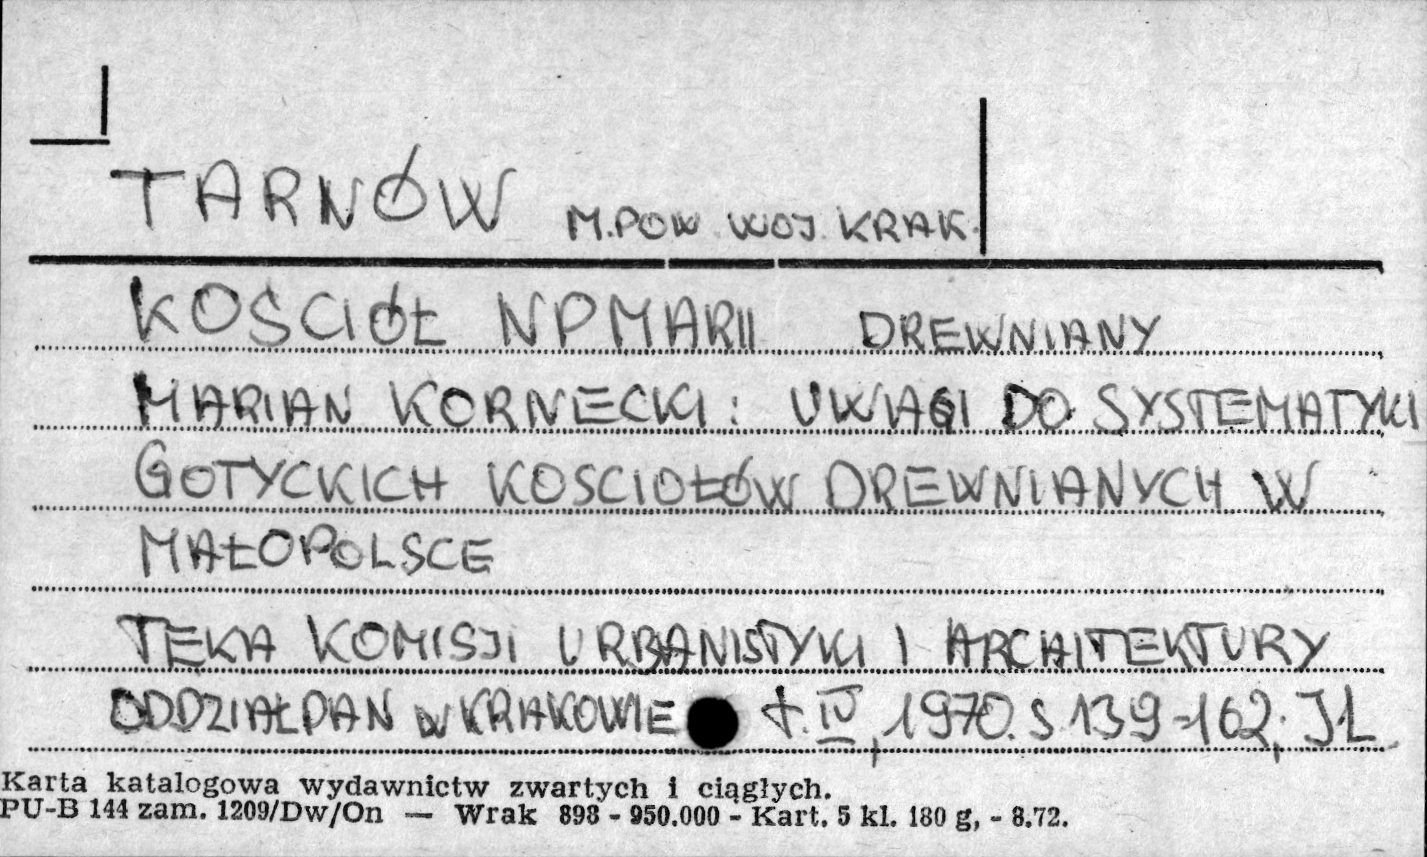 TARNÓW M.POW. WOJ. KRAK.
KOŚCIÓŁ NPMARII DREWNIANY
MARIAN KORNECKI: UWAGI DO SYSTEMATYKI
GOTYCKICH KOSCIOŁÓW DREWNIANYCH W
MAŁOPOLSCE
TEKA KOMISJI URBANISTYKI I ARCHITEKTURY
ODDZIAŁ PAN W KRAKOWIE t. IV, 1970. S 139-162; IL
Karta katalogowa wydawnictw zwartych i ciągłych.
PU-B 144 zam. 1209/Dw/On — Wrak 898 - 950.000 - Kart. 5 kl. 180 g, - 8.72.